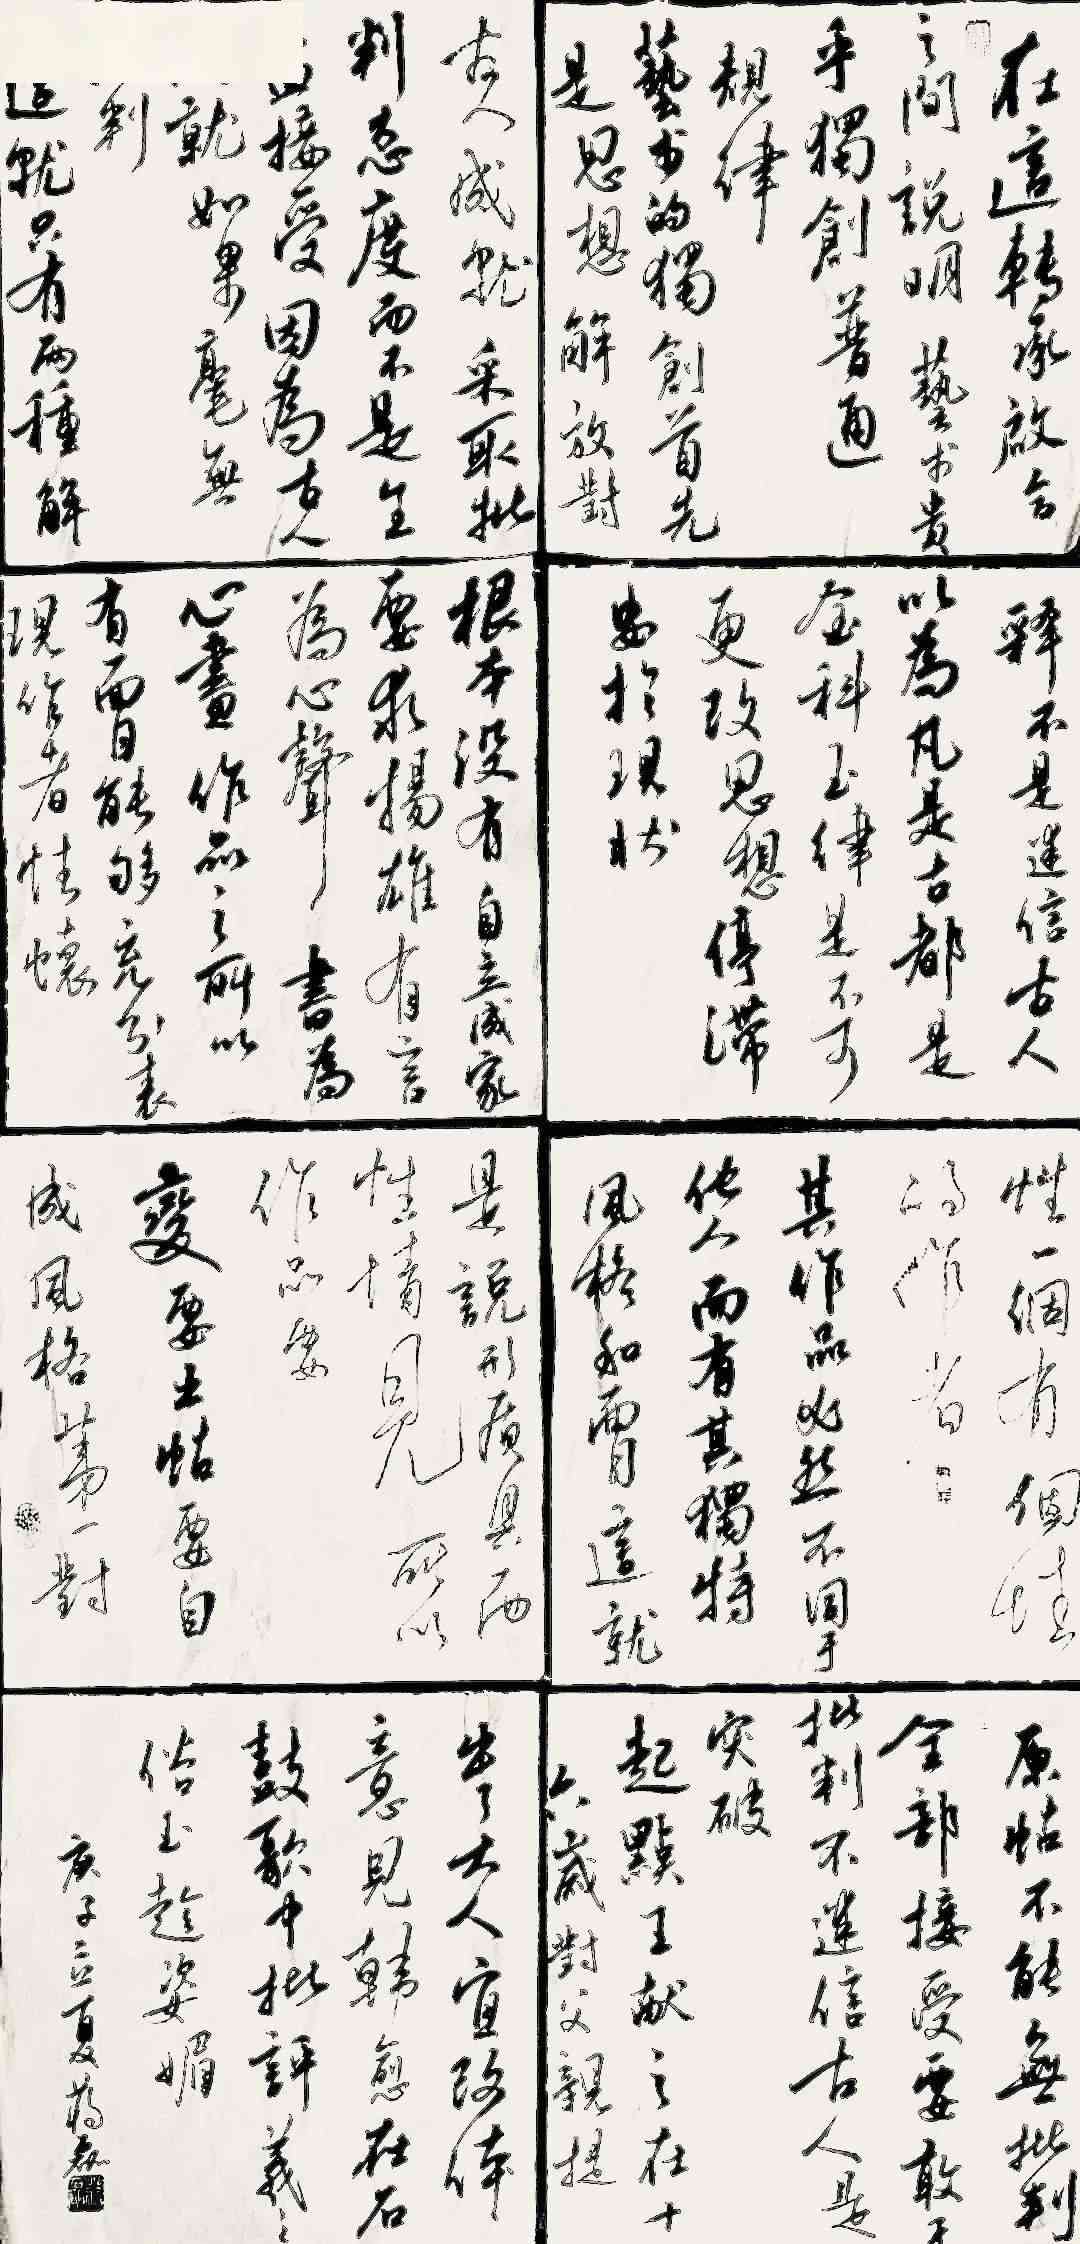 在這轉承啟合
之間說明藝术贵
乎獨創普通
規律
藝术的獨創首先
是思想解放對
古人成就采取批
判态度而不是全
接受因為古人
就如果毫無
判
這就只有两種解
释不是迷信古人
以為凡是古都是
金科玉律是不可
更改思想停滞
安於現狀
根本没有自立成家
要求揚雄有言
為心聲書為
心畫作品之所以
有面目能够充分表
現作者性懷
性一個有個性
的作者
其作品必然不同于
他人而有其獨特
風格和面目這就
是說形质具而
性情見所以
作品要
變要出帖要自
成風格第一對
原帖不能無批判
全部接受要敢于
批判不迷信古人是
突破
起點王献之在十
六歲對父親提
出了大人宜改体
意見韓愈在石
鼓歌中批評羲之
俗书趁姿媚
庚子立夏